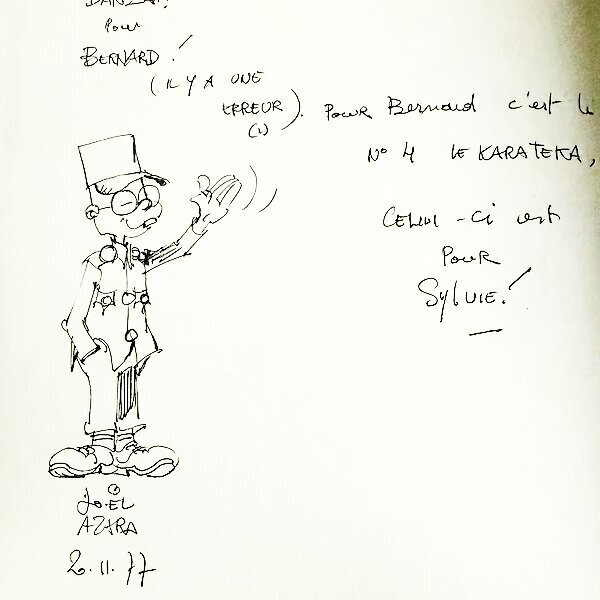 pour
BERNARD !
( IL Y A UNE
ERREUR
(1) ).
POUR Bernard c'est le
N° 4 LE KARATEKA,
CELUI-Ci est
POUR
SYLVIE !
JO-EL
AZARA
2.11.77